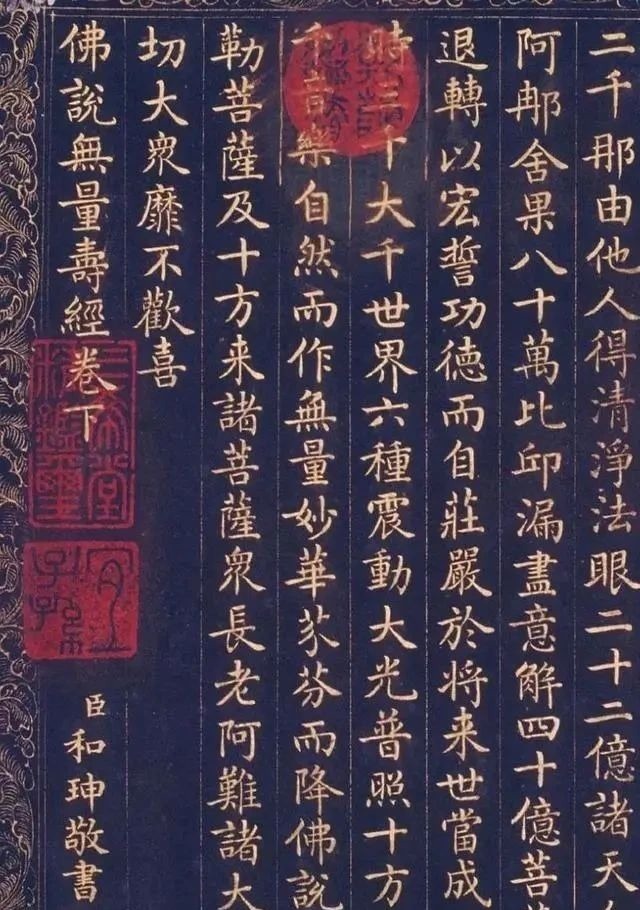 二千那由他人得清淨法眼二十二億諸天
阿那舍果八十萬比邱漏盡意解四十億菩
退轉以宏誓功德而自莊嚴於将来世當成
時三千大千世界六種震動大光普照十方
樂自然而作無量妙華芬芬而降佛說
勒菩薩及十方来諸菩薩衆長老阿難諸大
切大衆靡不歡喜
佛說無量壽經卷下
臣和珅敬書
三希堂精鑑璽
宜子孫